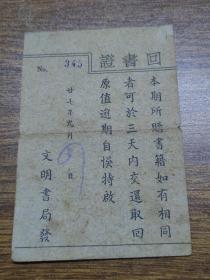 回書證
No. 345
本期所贈書籍如有相同
者可於三天内交還取回
原值逾期自悞特啟
廿七年九月 日
文明書局發